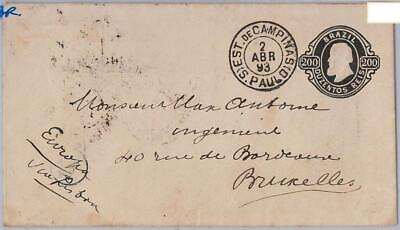 BRAZIL
200 200
DUZENTOS REIS
EST. DE CAMPINAS (O)
2
ABR
93
S. PAULO
Monsieur Max Antoine
ingenieur
40 rue de Bordeaux
Bruxelles
Europa
Via Lisboa